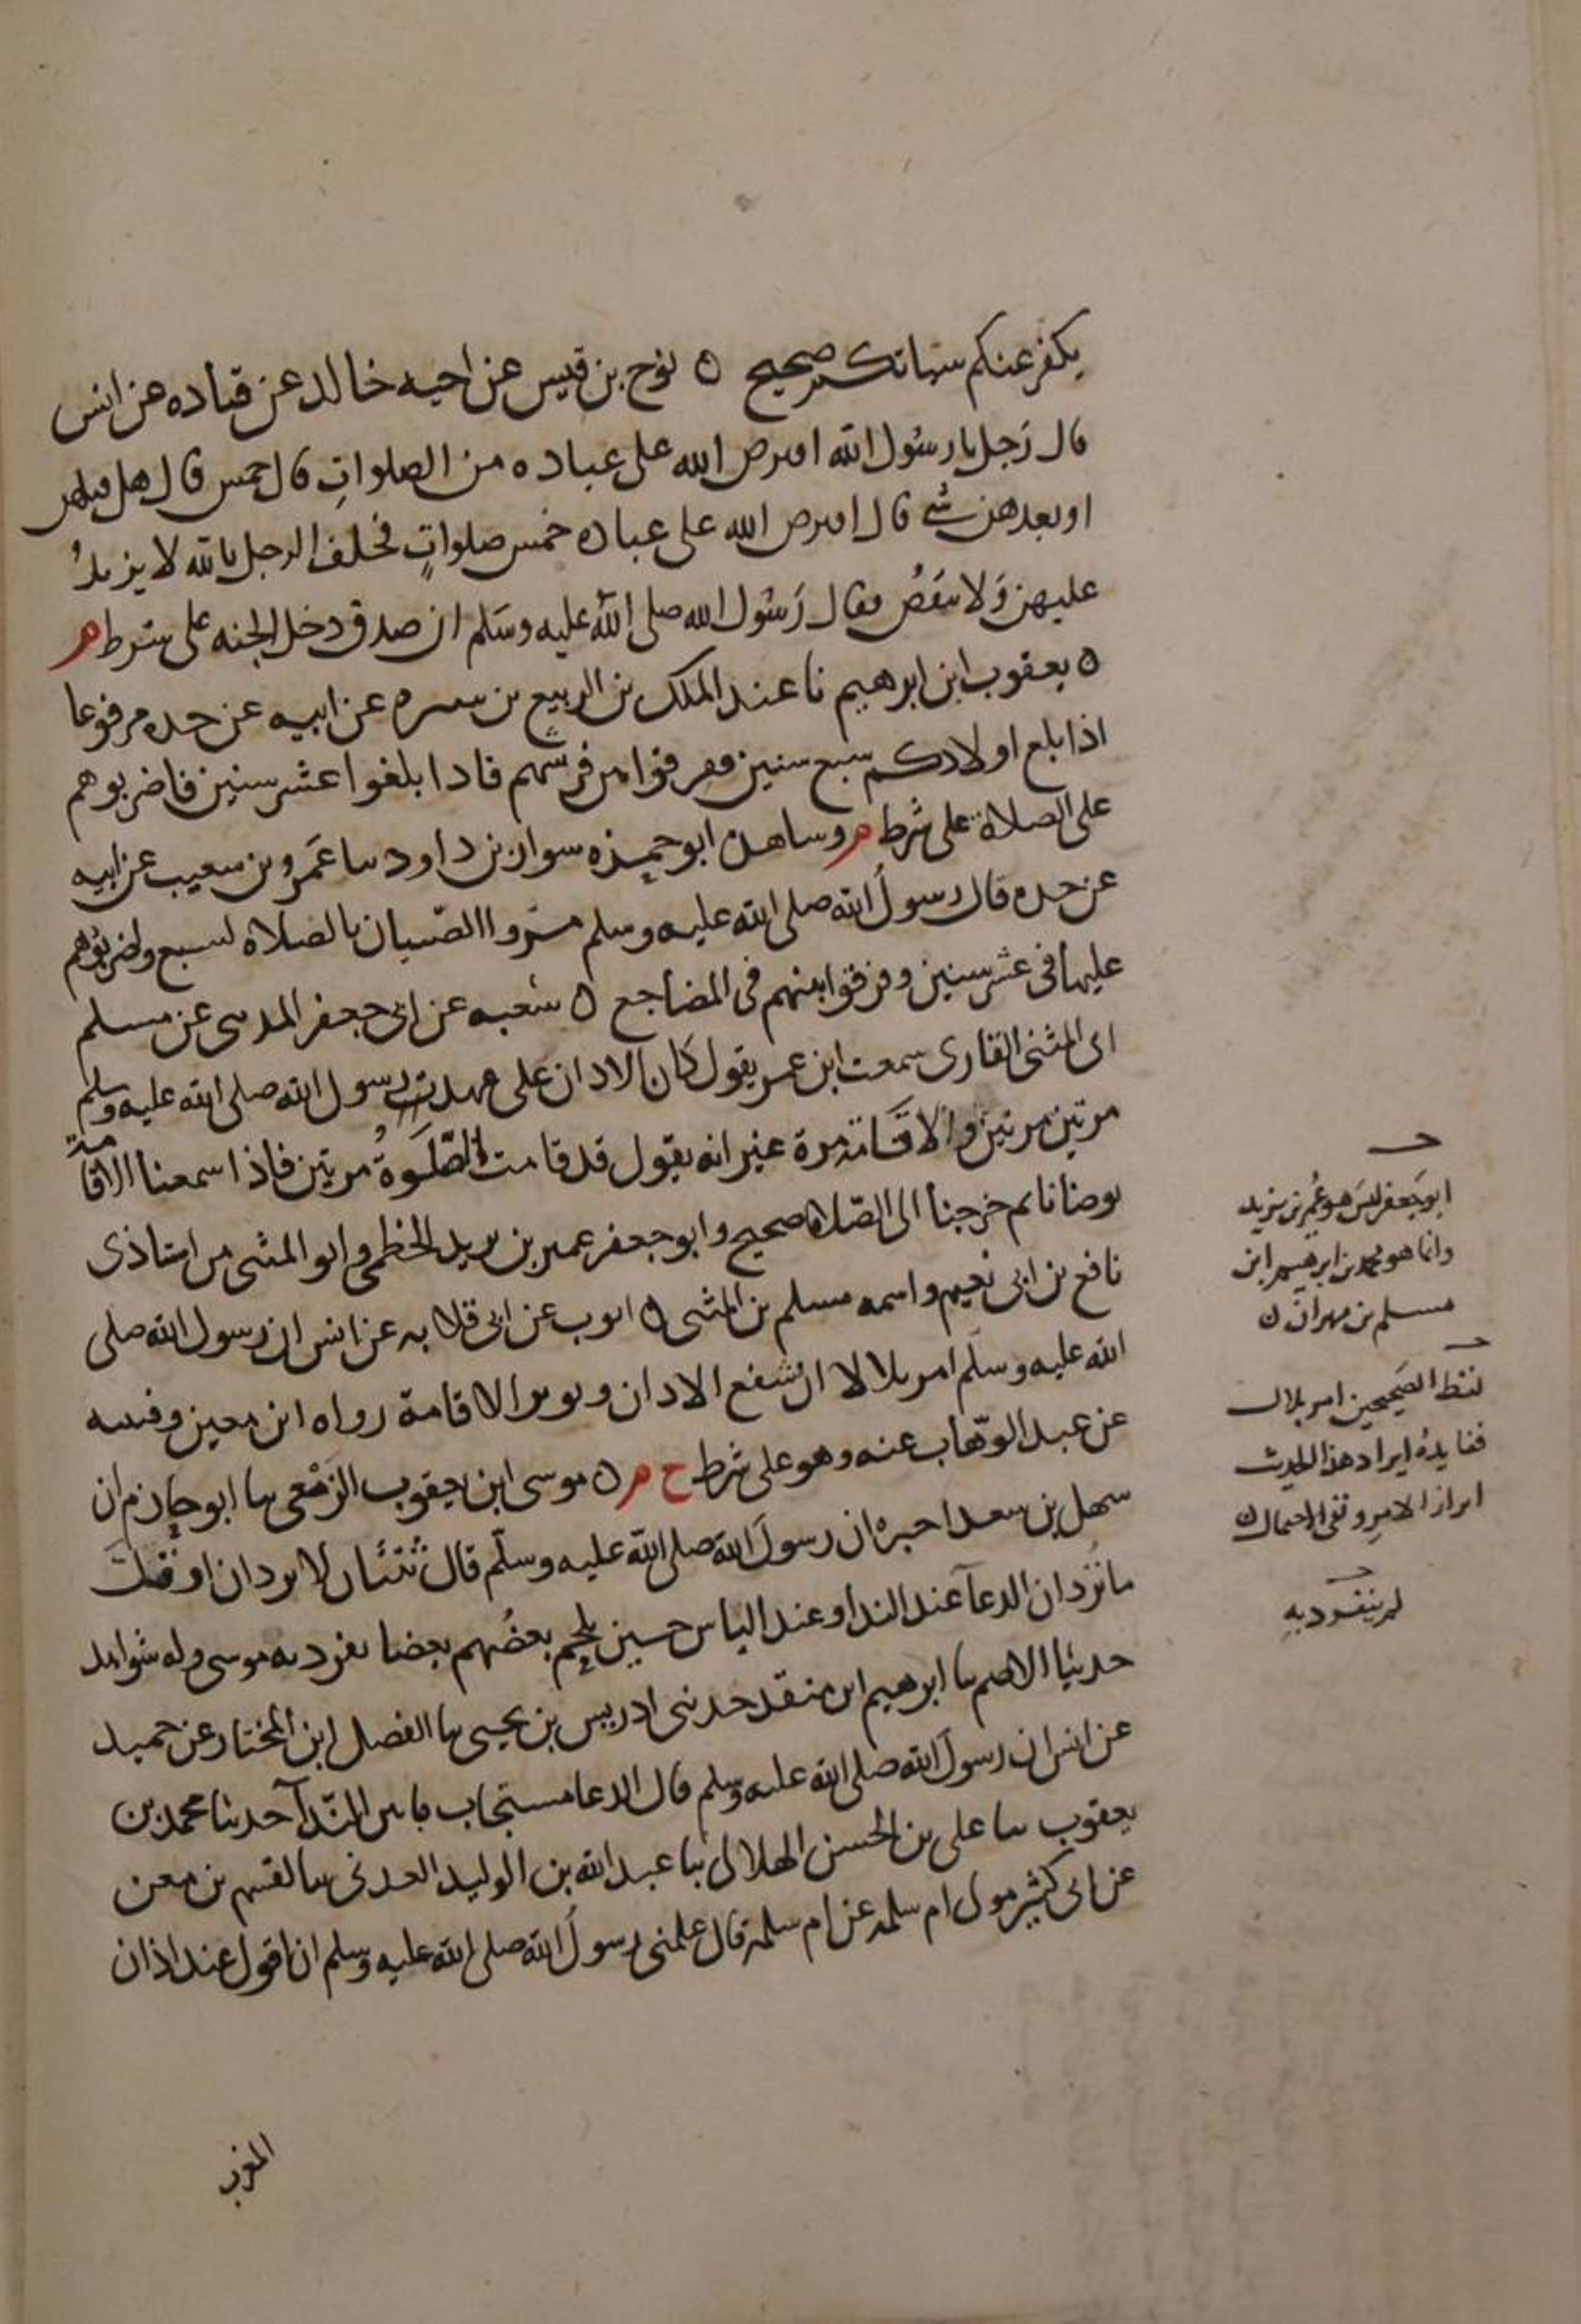 يكفر عنكم سيئاتكم صحيح ه نوح بن قيس عن اخيه خالد عن قتاده عن انس
قال رَجل يا رسُول الله افترض الله على عباده من الصلواتِ قال خمس قال هل قبلهن
او بعدهن شئ قال افترض الله على عباده خمس صلواتٍ فحلف الرجل بالله لا يزيدُ
عليهن وَلا ينقصُ فقال رَسُول الله صلى اللهُ عليه وسَلم ان صدق دخل الجنه على شرط م
ه يعقوب ابن ابرهيم نا عبد الملك بن الربيع بن سبره عن ابيه عن جده مرفوعا
اذا بلغ اولادكم سبع سنين ففرقوا بين فرشهم فاذا بلغوا عشر سنين فاضربوهم
على الصلاة على شرط م وشاهده ابو حمزه سوار بن داود سا عَمرو بن شعيب عن ابيه
عن جده قال رسولُ الله صلى الله عليه وسلم مرّوا الصّبيان بالصلاه لسبع واضربوهم
عليها فى عشر سنين وفرقوا بينهم فى المضاجع ه شعبه عن ابى جعفر المدنى عن مسلم
ابى المثنى القارى سمعت ابن عمر يقول كان الاذان على عهد رسول الله صلى الله عليه وسلم
مرتين مرتين والاقامة مرة غير انه يقول قد قامت الصّلَوةُ مرتين فاذا سمعنا الاقامة
توضانا ثم خرجنا الى الصّلاه صحيح وابو جعفر عمير بن يزيد الخطمى وابو المثنى من استاذى
نافع بن ابى نعيم واسمه مسلم بن المثنى ه ايوب عن ابى قلابه عن انس ان رسول الله صلى
الله عليه وسلّم امر بلالا ان يُشفع الاذان ويوتر الاقامة رواه ابن معين وقتيبه
عن عبد الوهّاب عنه وهو على شرط خ م ه موسى ابن يعقوب الزَمْعى سا ابو حازم ان
سهل بن سعد اخبره ان رسولَ الله صلى الله عليه وسلّم قال ثنتان لا تردان او قلّت
ما تُردان الدعآ عند الندا وعند الباس حين يلحم بعضُهم بعضا تفرد به موسى وله شواهد
حدثنا الاصم سا ابرهيم ابن منقذ حدثنى ادريس بن يحيى سا الفضل ابن المختار عن حميد
عن انس ان رسولَ الله صلى الله عليه وسلم قال الدعا مستجاب ما بين الندآ حدثنا محمد بن
يعقوب سا على بن الحسن الهلالى سا عبد الله بن الوليد العدنى سا القسم بن معن
عن ابى كثير مولى ام سلمه عن ام سلمة قال علمنى رسولُ الله صلى الله عليه وسلم ان اقول عند اذان
المغرب
ابو جَعفر ليسَ هو عُمير بن يزيد
وانما هو محمد بن ابرهيم ابن
مسلم بن مهران ن
لفظ الصَحيحين امر بلال
ففايدةُ ايراد هذا الحديث
ابراز الامِر ونفى الاحتمال ن
لم ينفرد بهِ